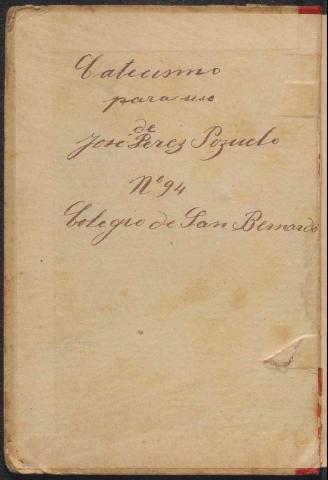 Catecismo
para uso
de
José Perez Pozuelo
Nº 94
Colegio de San Bernardo